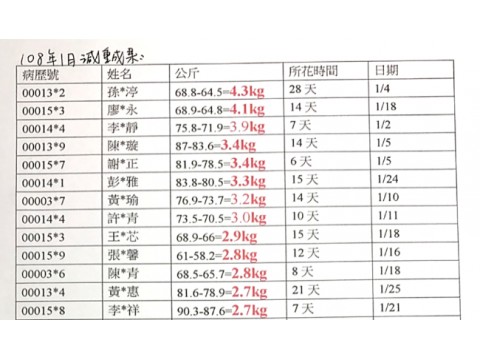 108年1月減重成果:
病歷號 姓名 公斤 所花時間 日期
00013*2 孫*渟 68.8-64.5=4.3kg 28 天 1/4
00015*3 廖*永 68.9-64.8=4.1kg 14 天 1/18
00014*4 李*靜 75.8-71.9=3.9kg 7 天 1/2
00013*9 陳*璇 87-83.6=3.4kg 14 天 1/5
00015*7 謝*正 81.9-78.5=3.4kg 6 天 1/5
00014*1 彭*雅 83.8-80.5=3.3kg 15 天 1/24
00003*7 黃*瑜 76.9-73.7=3.2kg 14 天 1/10
00014*4 許*青 73.5-70.5=3.0kg 10 天 1/11
00015*3 王*芯 68.9-66=2.9kg 15 天 1/18
00015*9 張*馨 61-58.2=2.8kg 12 天 1/16
00003*6 陳*青 68.5-65.7=2.8kg 8 天 1/18
00013*4 黃*惠 81.6-78.9=2.7kg 21 天 1/25
00015*8 李*祥 90.3-87.6=2.7kg 7 天 1/21